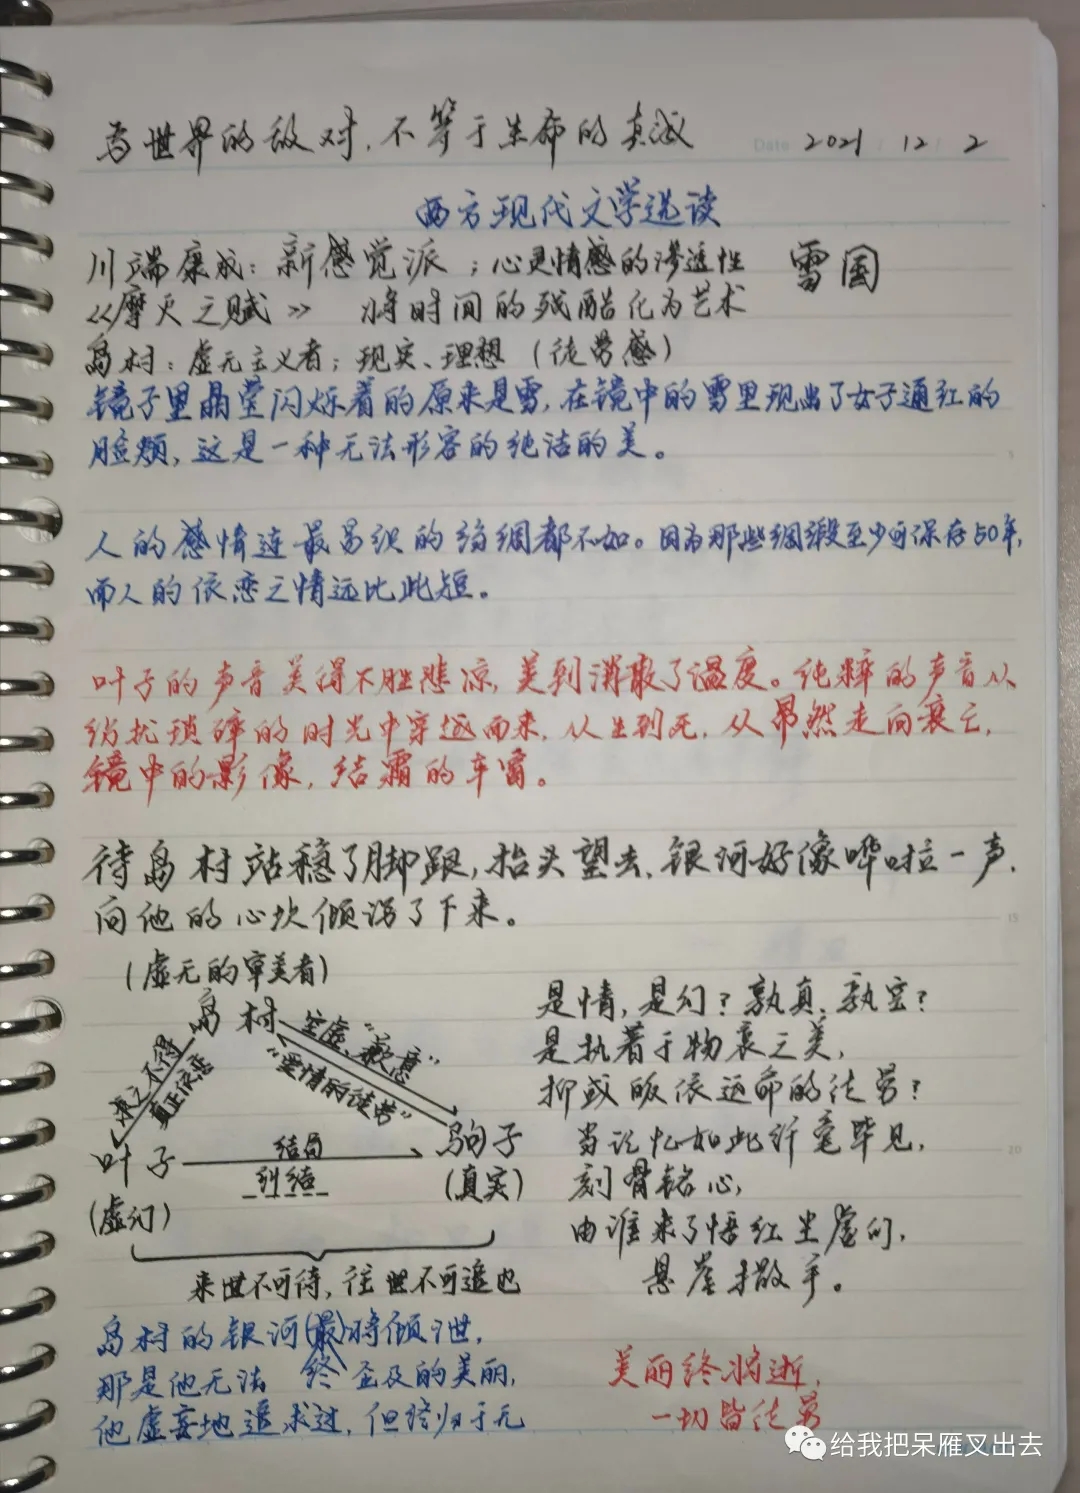 与世界的敌对，不等于生命的真诚
Date 2021 12 2
西方现代文学选读
川端康成：新感觉派；心灵情感的渗透性 雪国
《摩灭之赋》 将时间的残酷化为艺术
岛村：虚无主义者；现实、理想（徒劳感）
镜子里晶莹闪烁着的原来是雪，在镜中的雪里现出了女子通红的
脸颊，这是一种无法形容的纯洁的美。
人的感情连最易织的绉绸都不如。因为那些绸缎至少可保存50年，
而人的依恋之情远比此短。
叶子的声音美得不胜悲凉，美到消散了温度。纯粹的声音从
纷扰琐碎的时光中穿越而来，从生到死，从昂然走向衰亡，
镜中的影像，结霜的车窗。
待岛村站稳了脚跟，抬头望去，银河好像哗啦一声，
向他的心坎倾泻了下来。
（虚无的审美者）
岛村
空虚、“歉意”
“爱情的徒劳”
求之不得
真正依恋
叶子
结局
纠结
驹子
（虚幻）
（真实）
来世不可待，往世不可追也
是情，是幻？孰真，孰空？
是执着于物哀之美，
抑或皈依运命的徒劳？
当记忆如此纤毫毕见，
刻骨铭心，
由谁来了悟红尘虚幻，
悬崖撒手。
岛村的银河（最）将倾泄，
终
那是他无法企及的美丽，
他虚妄地追求过，但终归于无
美丽终将逝，
一切皆徒劳
给我把呆雁叉出去